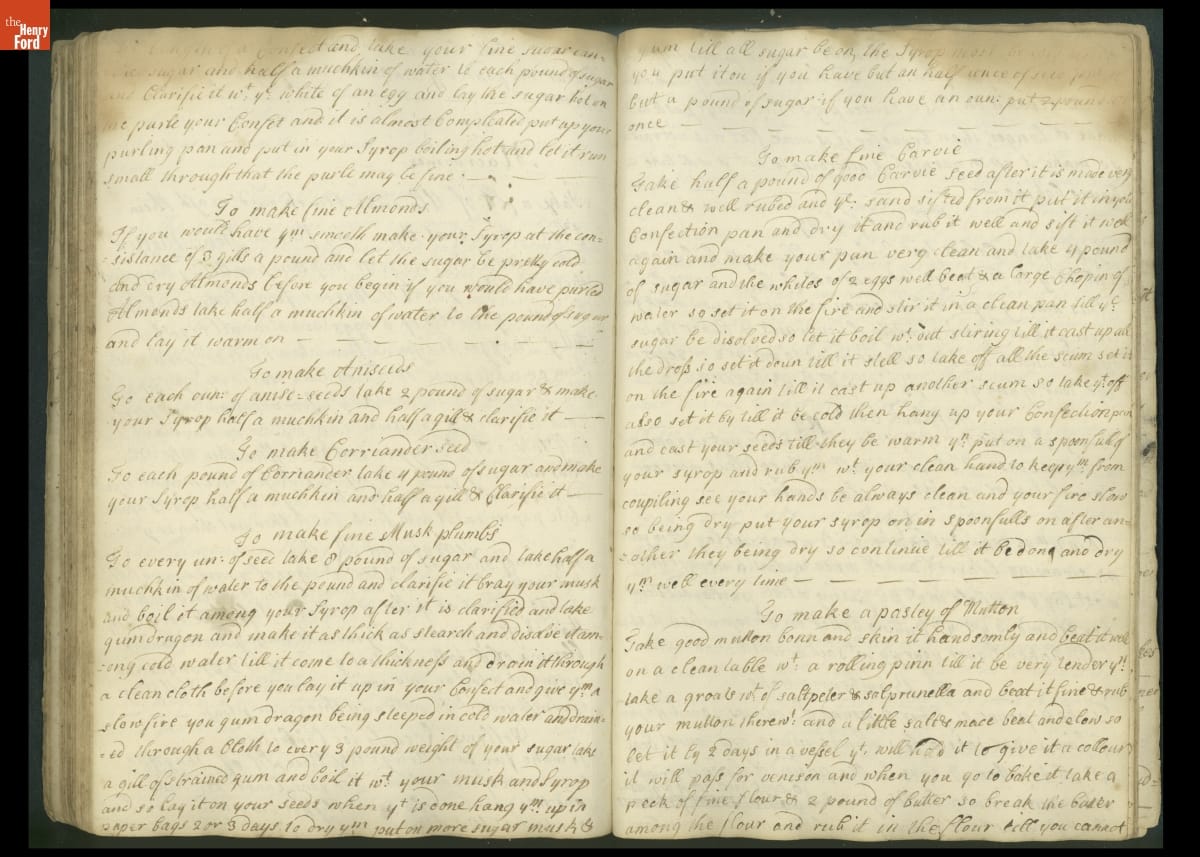 the Henry Ford
of a Confect and take your fine sugar can-
sugar and half a muchkin of water to each pound of sugar
and Clarifie it wt. ye. white of an egg and lay the sugar hot on
purle your Confet and it is almost Compleated put up your
purling pan and put in your Syrop boiling hot and let it run
small through that the purle may be fine
To make fine Almonds
If you would have ym smooth make your Syrop at the con-
=sistance of 3 gills a pound and let the sugar be pretty cold
and dry Almonds before you begin if you would have purled
Almonds take half a muchkin of water to the pound of sugar
and lay it warm on
To make Aniseids
To each oun: of anise=seeds take 2 pound of sugar & make
your Syrop half a muchkin and half a gill & clarifie it
To make Corriander seed
To each pound of Corriander take 4 pound of sugar and make
your Syrop half a muchkin and half a gill & Clarifie it
To make fine Musk plumbs
To every un: of seed take 8 pound of sugar and take half a
muchkin of water to the pound and clarifie it bray your musk
and boil it among your Syrop after it is clarified and take
gumdragon and make it as thick as stearch and disolve it am-
=ong cold water till it come to a thickness and drain it through
a clean cloth before you lay it up in your Confect and give ym a
slow fire you gumdragon being steeped in cold water and drain-
=ed through a Cloth to every 3 pound weight of your sugar take
a gill of strained gum and boil it wt. your musk and Syrop
and so lay it on your seeds when yt is done hang ym up in
paper bags 2 or 3 days to dry ym put on more sugar musk &
gum till all sugar be on, the Syrop must be
you put it on if you have but an half unce of seed put
but a pound of sugar if you have an oun: put 2 pound
once
To make fine Carvie
Take half a pound of good Carvie seed after it is made very
clean & well rubed and ye. sand sifted from it put it in you
Confection pan and dry it and rub it well and sift it well
again and make your pan very clean and take 4 pound
of sugar and the whites of 2 eggs well beat & a large Chopin of
water so set it on the fire and stir it in a clean pan till ye.
sugar be disolved so let it boil wt. out stiring till it cast up all
the dross so set it doun till it stell so take off all the scum set it
on the fire again till it cast up another scum so take yt off
also set it by till it be cold then hang up your Confection pan
and cast your seeds till they be warm yn put on a spoonfull of
your syrop and rub ym wt. your clean hand to keep ym from
coupiling see your hands be always clean and your fire slow
so being dry put your syrop on in spoonfulls on after an=
=other they being dry so continue till it be done and dry
ym well every time
To make a pasley of Mutton
Take good mutton bonn and skin it handsomly and beat it well
on a clean table wt. a rolling pinn till it be very tender yn
take a groats wt. of saltpeter & salprunella and beat it fine & rub
your mutton therewt. and a little salt & mace beat and slow so
let it ly 2 days in a vessel yt. will hold it to give it a collour
it will pass for venison and when you go to bake it take a
peck of fine flour & 2 pound of butter so break the buter
among the flour and rub it in the flour till you cannot